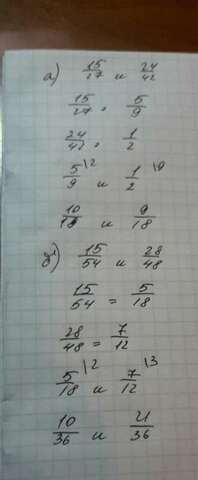 а) 15/27 и 24/42
15/27 = 5/9
24/42 = 1/2
5/9 \2 и 1/2 \9
10/18 и 9/18
б) 15/54 и 28/48
15/54 = 5/18
28/48 = 7/12
5/18 \2 и 7/12 \3
10/36 и 21/36